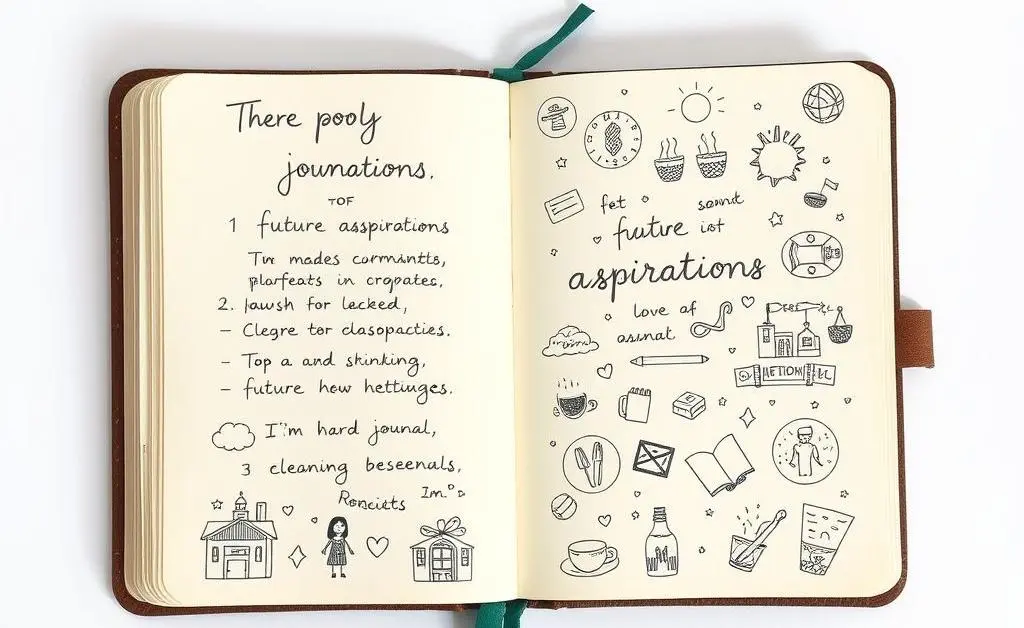 There pooly
jounations.
TOF
1 future asspirations
Tw mades cormantts,
plarfeats in cropates,
2. Jawsh for lacked,
– Clegre tor clasopacties.
– Top a and shinking,
– future how hettinges.
I'm hard journal,
3 cleaning beseenals,
Roncists Im.
fet sount
future ist
aspirations
love of
asunat